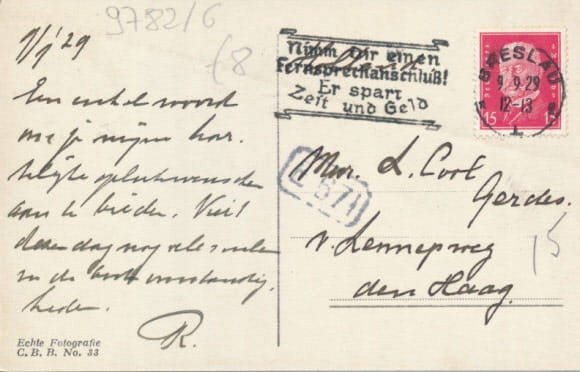 9782/6
(8
Nimm Dir einen
Fernsprechanschluß!
Er spart
Zeit und Geld
BRESLAU
9.9.29
12-13
1
15 15
9/9 '29
Een enkel woord
om je mijn har-
telijke gelukwenschen
aan te bieden. Vier
dezen dag nog vele malen
in de beste omstandig-
heden.
R.
Mevr. L. Cool
Gerdes.
v. Lennepweg
den Haag.
L 671
15
Echte Fotografie
C. B. B. No. 33